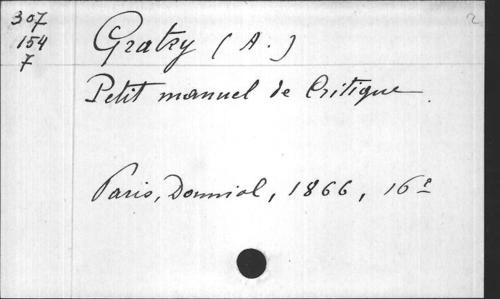 307
154
7
Gratry (A.)
Petit manuel de Critique
Paris, Douniol, 1866, 16º